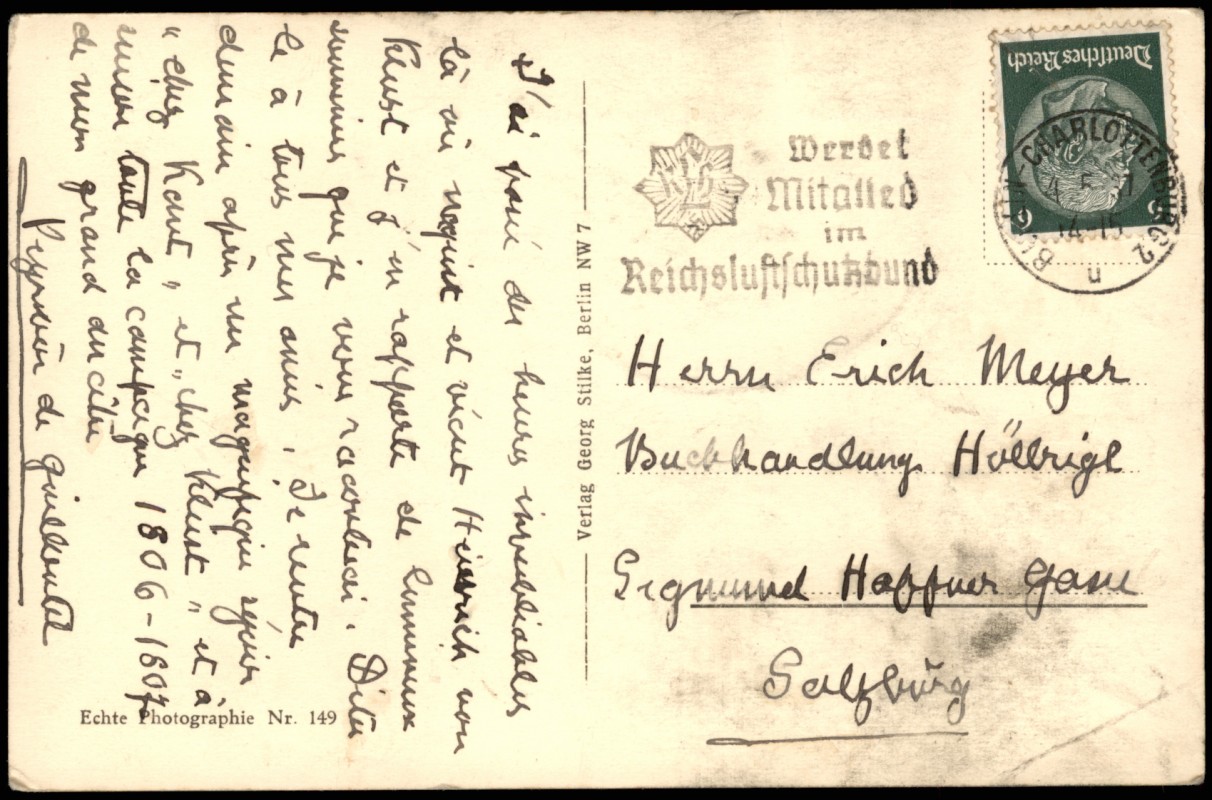 J'ai passé des heures inoubliables
là où naquit et vécut Heinrich von
Kleist et j'en rapporte de lumineux
que je vous raconterai. Dites
le à tous mes amis. Je rentre
demain après un magnifique séjour
"chez Kant" et "chez Kleist" et à
toute la campagne 1806-1807
de mon grand ancêtre
de
Echte Photographie Nr. 149
Verlag Georg Stilke, Berlin NW 7
Werdet
Mitglied
im
Reichsluftschutzbund
Deutsches Reich
6 6
BERLIN-CHARLOTTENBURG 2
n
Herrn Erich Meyer
Buchhandlung Höllrigl
Sigmund Haffner Gasse
Salzburg